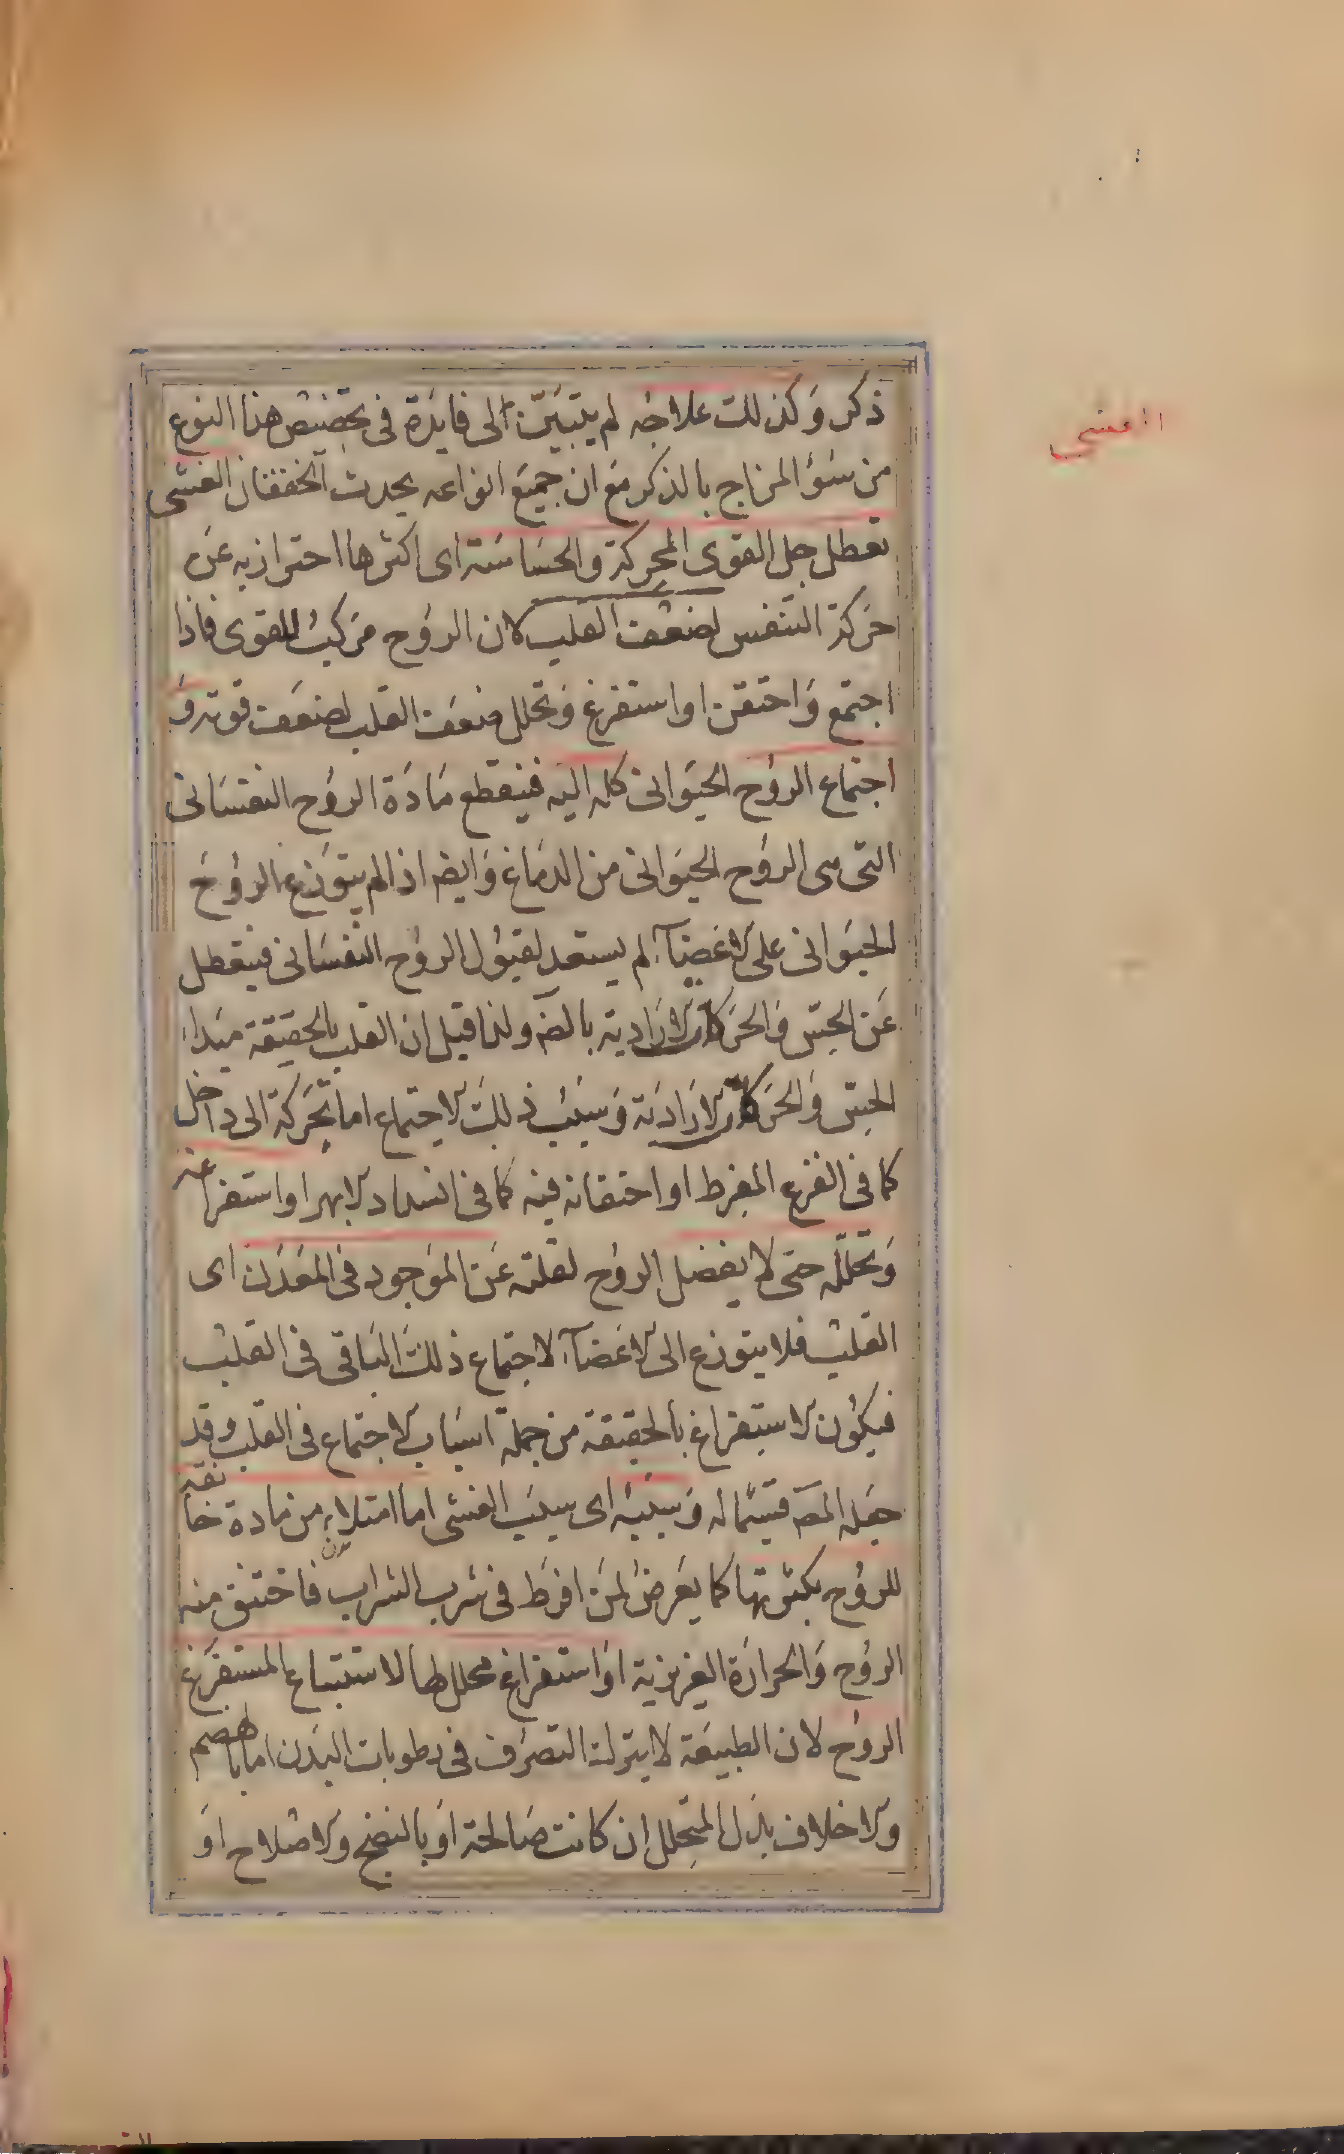 الغشى
ذكر وَكذلك علاجُه لم يتبيّن لى فايَدة فى تخصيص هذا النوع
من سُوُ المزاج بالذكر مَع ان جميَع انواعه يحدث الخفقان الغشى
تعطل جل القوى المحركة والحسَاسَة اى اكثرها احتراز به عَن
حَركة التنفس لضعف القلب كان الروُح مَركبُ للقوى فاذا
اجتمع وَاحتقن او استفرغ وَتحلل ضعَف القلب لضعَف قوته وَ
اجتماع الروُح الحيَوانى كله اليَه فينقطع مَادَة الروُح النفسَانى
التى هى الروُح الحيَوانى من الدمَاغ وَايضا اذا لم يتوَزع الروُحَ
الحيَوانى على الاعَضآء لم يستعد لقبوُل الروُح النفسَانى فيتعطل
عَن الحِسّ وَالحَركات الارَادية بالضَ ولذا قيل ان القلب بالحقيَقة مبَداء
الحِسّ وَالحَركات الارَادَية وَسَبَبُ ذلِكَ الاجتماع اما تحَركة الى داخل
كما فى الفزع المفِرط او احتقانه فيه كما فى انسداد الابهر او استفراغه
وَتحَلّله حتى لا يفضل الروُح لقلته عَن الموَجود فى المعَدَن اى
القلب فلا يتوزع الى الاعَضآء لاجتماع ذلكَ البَاقى فى القلب
فيكوُن الاستِفراغ بالحقيقة من جملة اسَباب الاجتماع فى القلب وقد
جعَله المصَ قسَيما له وَسَببُه اى سبَب الغشى اما امتلاء من مادة خانقة
للروُح بكثرتها كما يعَرضُ لمنَ افرَط فى شرب الشراب فاختنق منه
الروُح وَالحرارَة الغرِيزية اوَ استفراغ محلل لها لاستتباع المستفرَغ
الروُح لان الطبيعَة لا يترك التصرُف فى رطوبات البَدن اما بالهضم
والاخلاف بدَل المتحَلل ان كانت صَالحة اوَ بالنضج والاصلاح اوَ